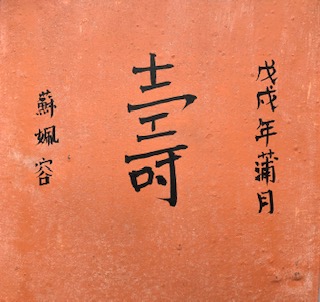 戊戌年蒲月
壽
蘇姵容